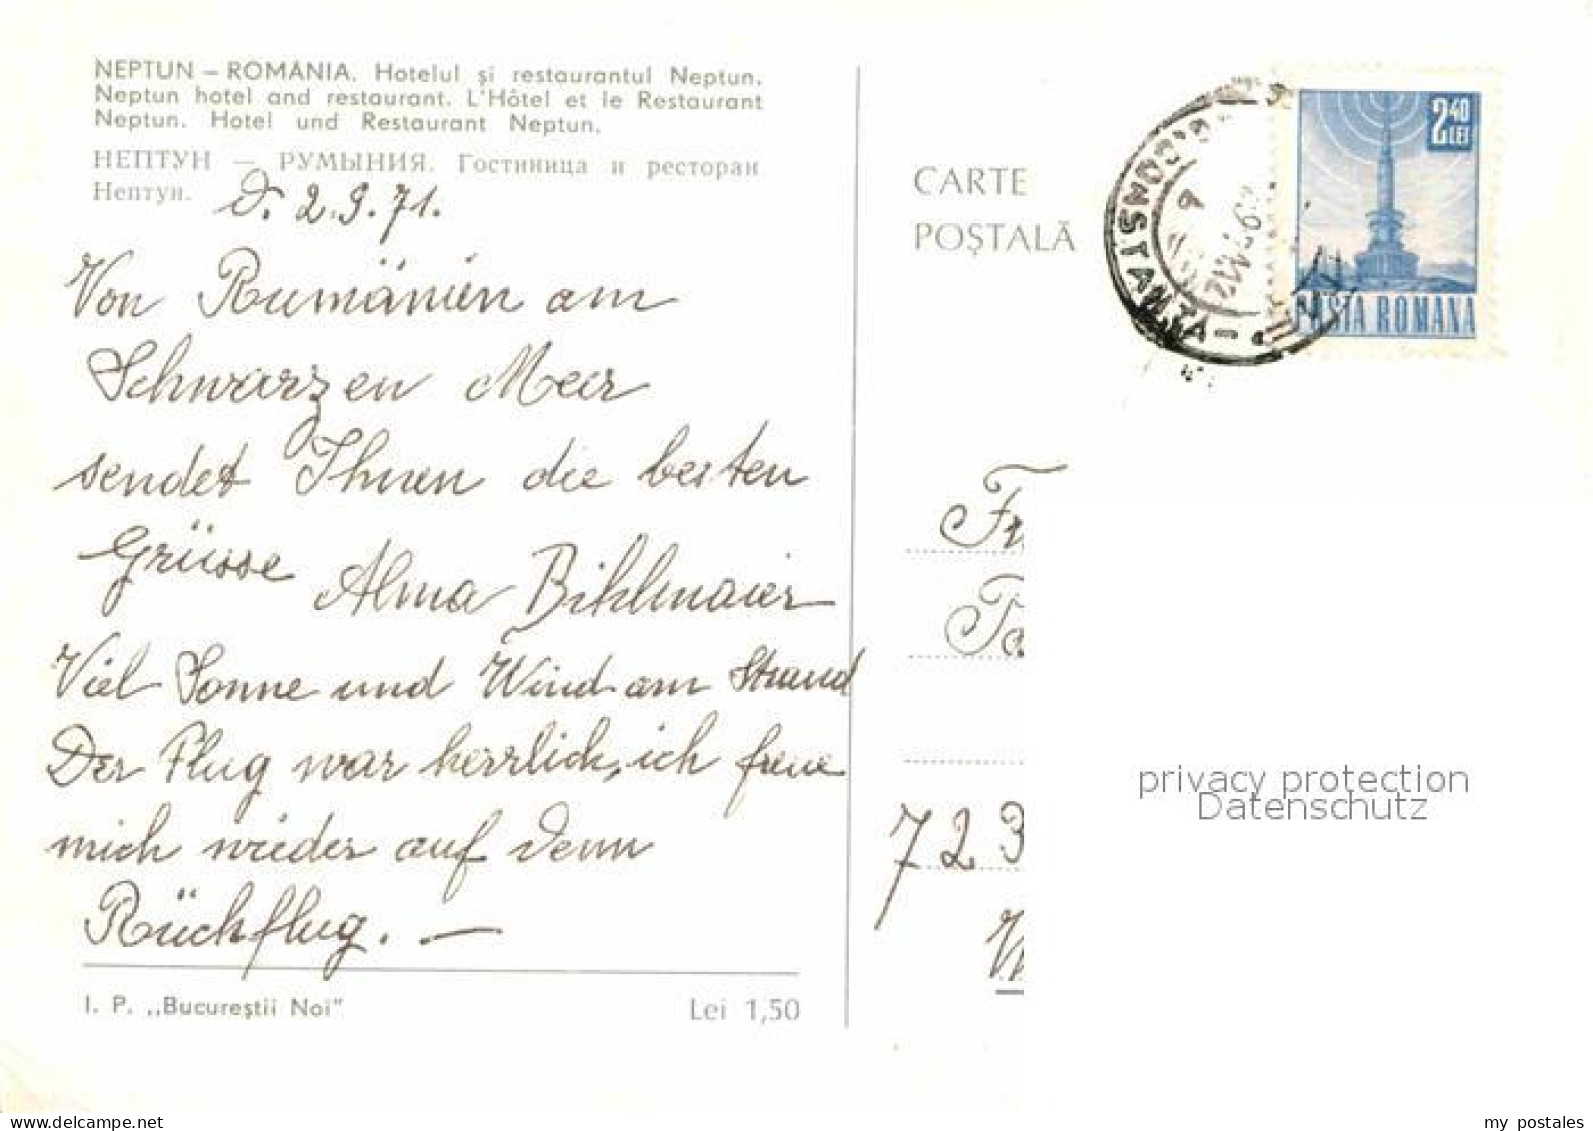 NEPTUN – ROMÂNIA. Hotelul și restaurantul Neptun.
Neptun hotel and restaurant. L'Hôtel et le Restaurant
Neptun. Hotel und Restaurant Neptun.
НЕПТУН — РУМЫНИЯ. Гостиница и ресторан
Нептун.
D. 2.9.71.
Von Rumänien am
Schwarzen Meer
sendet Ihnen die besten
Grüsse Alma Bihlmaier
Viel Sonne und Wind am Strand
Der Flug war herrlich, ich freue
mich wieder auf denn
Rückflug. —
I. P. „Bucureștii Noi"
Lei 1,50
CARTE
POȘTALĂ
CONSTANTA
2,40
LEI
POSTA ROMANA
7 2 3
privacy protection
Datenschutz
my postales